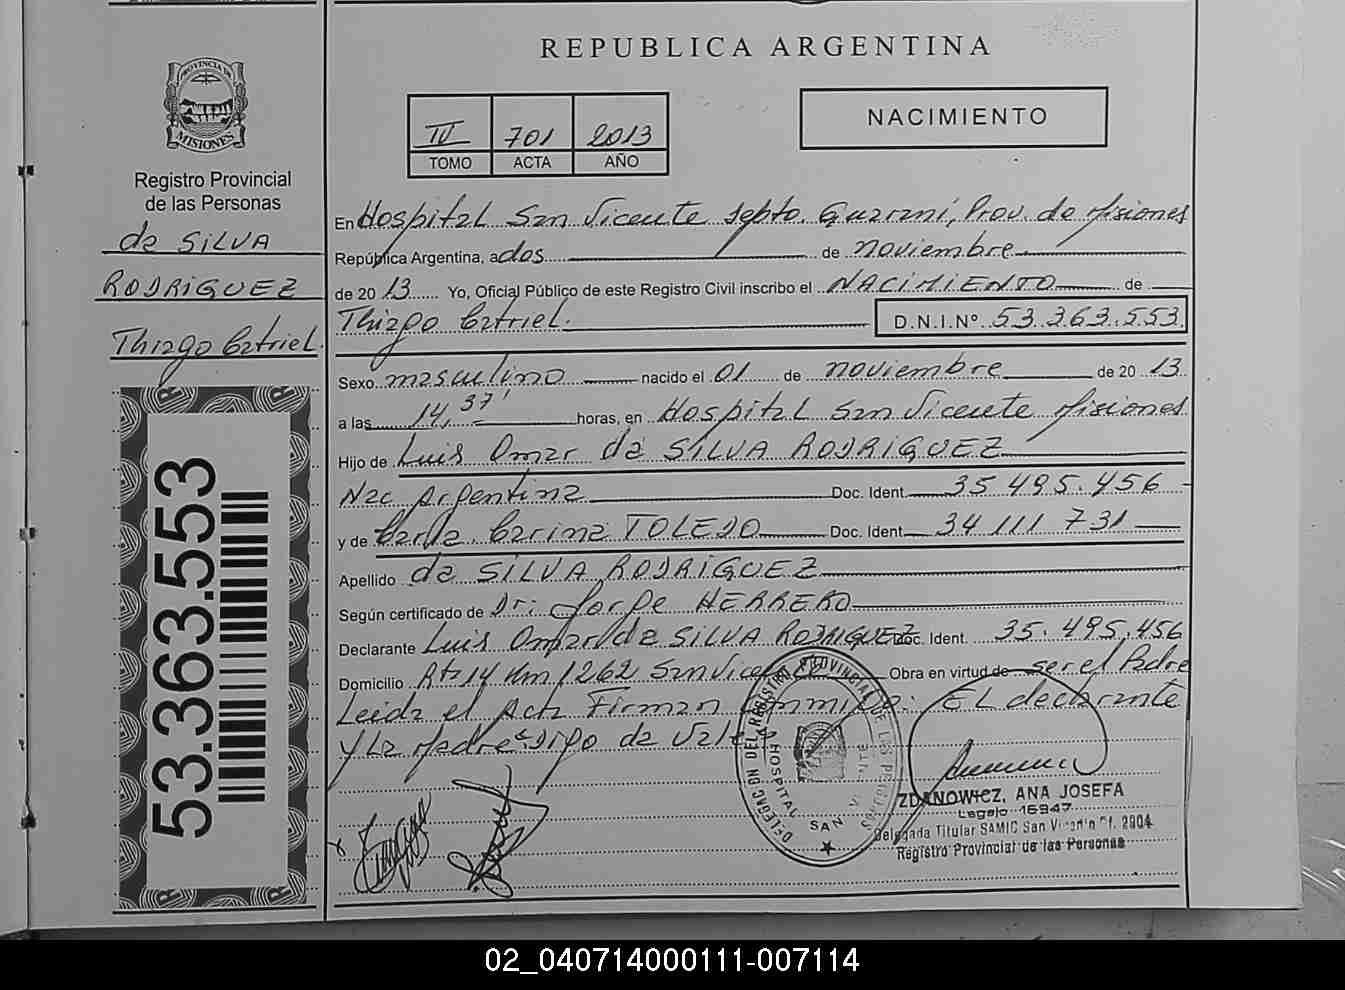 REPUBLICA ARGENTINA
PROVINCIA DE
MISIONES
Registro Provincial
de las Personas
da SILVA
RODRIGUEZ
Thiago
53.363.553
IV 701 2013
TOMO ACTA AÑO
NACIMIENTO
En Hospital San Vicente Depto. Guarani, Prov. de Misiones
República Argentina, a dos de noviembre
de 2013 Yo, Oficial Público de este Registro Civil inscribo el NACIMIENTO de
Thiago D.N.I.Nº 53.363.553
Sexo masculino nacido el 01 de noviembre de 2013
a las 14,37' horas, en Hospital San Vicente Misiones
Hijo de Luis Omar da SILVA RODRIGUEZ
Nac Argentina Doc. Ident. 35 495.456
y de Carla Carina TOLEDO Doc. Ident. 34 111 731
Apellido da SILVA RODRIGUEZ
Según certificado de Dr: Jorge HERRERO
Declarante Luis Omar da SILVA RODRIGUEZ Doc. Ident. 35.495.456
Domicilio Rta 14 Km 1262 San Vicente Obra en virtud de ser el Padre
Leida el Acta Firman conmigo: EL declarante
y La Madre. Digo da Vale
DELEGACION DEL REGISTRO PROVINCIAL DE LAS PERSONAS
HOSPITAL SAN VICENTE
ZDANOWICZ, ANA JOSEFA
Legajo 15947
Delegada Titular SAMIC San Vicente Of. 2904
Registro Provincial de las Personas
02_040714000111-007114